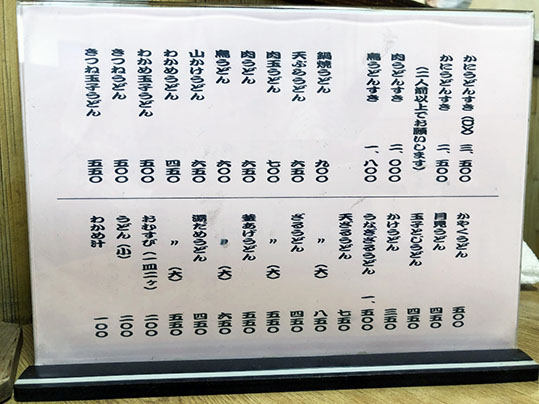 かにうどんすき(DX) 三、五〇〇
かにうどんすき 二、五〇〇
(二人前以上でお願いします)
肉うどんすき 二、〇〇〇
鳥うどんすき 一、八〇〇
鍋焼うどん 九〇〇
天ぷらうどん 六五〇
肉玉うどん 七〇〇
肉うどん 六五〇
鳥うどん 六〇〇
山かけうどん 六五〇
わかめうどん 四五〇
わかめ玉子うどん 五〇〇
きつねうどん 五〇〇
きつね玉子うどん 五五〇
かやくうどん 五〇〇
月見うどん 四五〇
玉子とじうどん 四五〇
かけうどん 三五〇
うなぎざるうどん 一、五〇〇
天ざるうどん 七五〇
〃 (大) 八五〇
ざるうどん 四五〇
〃 (大) 五五〇
釜あげうどん 五五〇
〃 (大) 六五〇
湯だめうどん 四五〇
〃 (大) 五五〇
おむすび(一皿二ヶ) 二〇〇
うどん(小) 二〇〇
わかめ汁 一〇〇